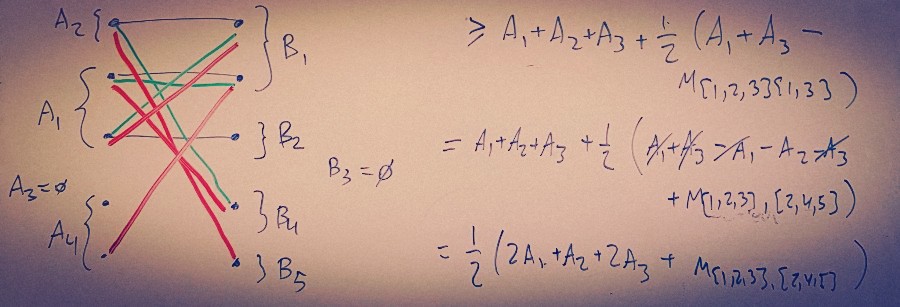 A₂ {
} B₁
A₁ {
} B₂
A₃=∅
B₃=∅
A₄ {
} B₄
} B₅
≥ A₁+A₂+A₃ + 1/2 (A₁+A₃ −
M{1,2,3}{1,3})
= A₁+A₂+A₃ + 1/2 (A₁+A₃ −A₁−A₂−A₃
+M{1,2,3},{2,4,5})
= 1/2 (2A₁+A₂+2A₃ + M{1,2,3},{2,4,5})